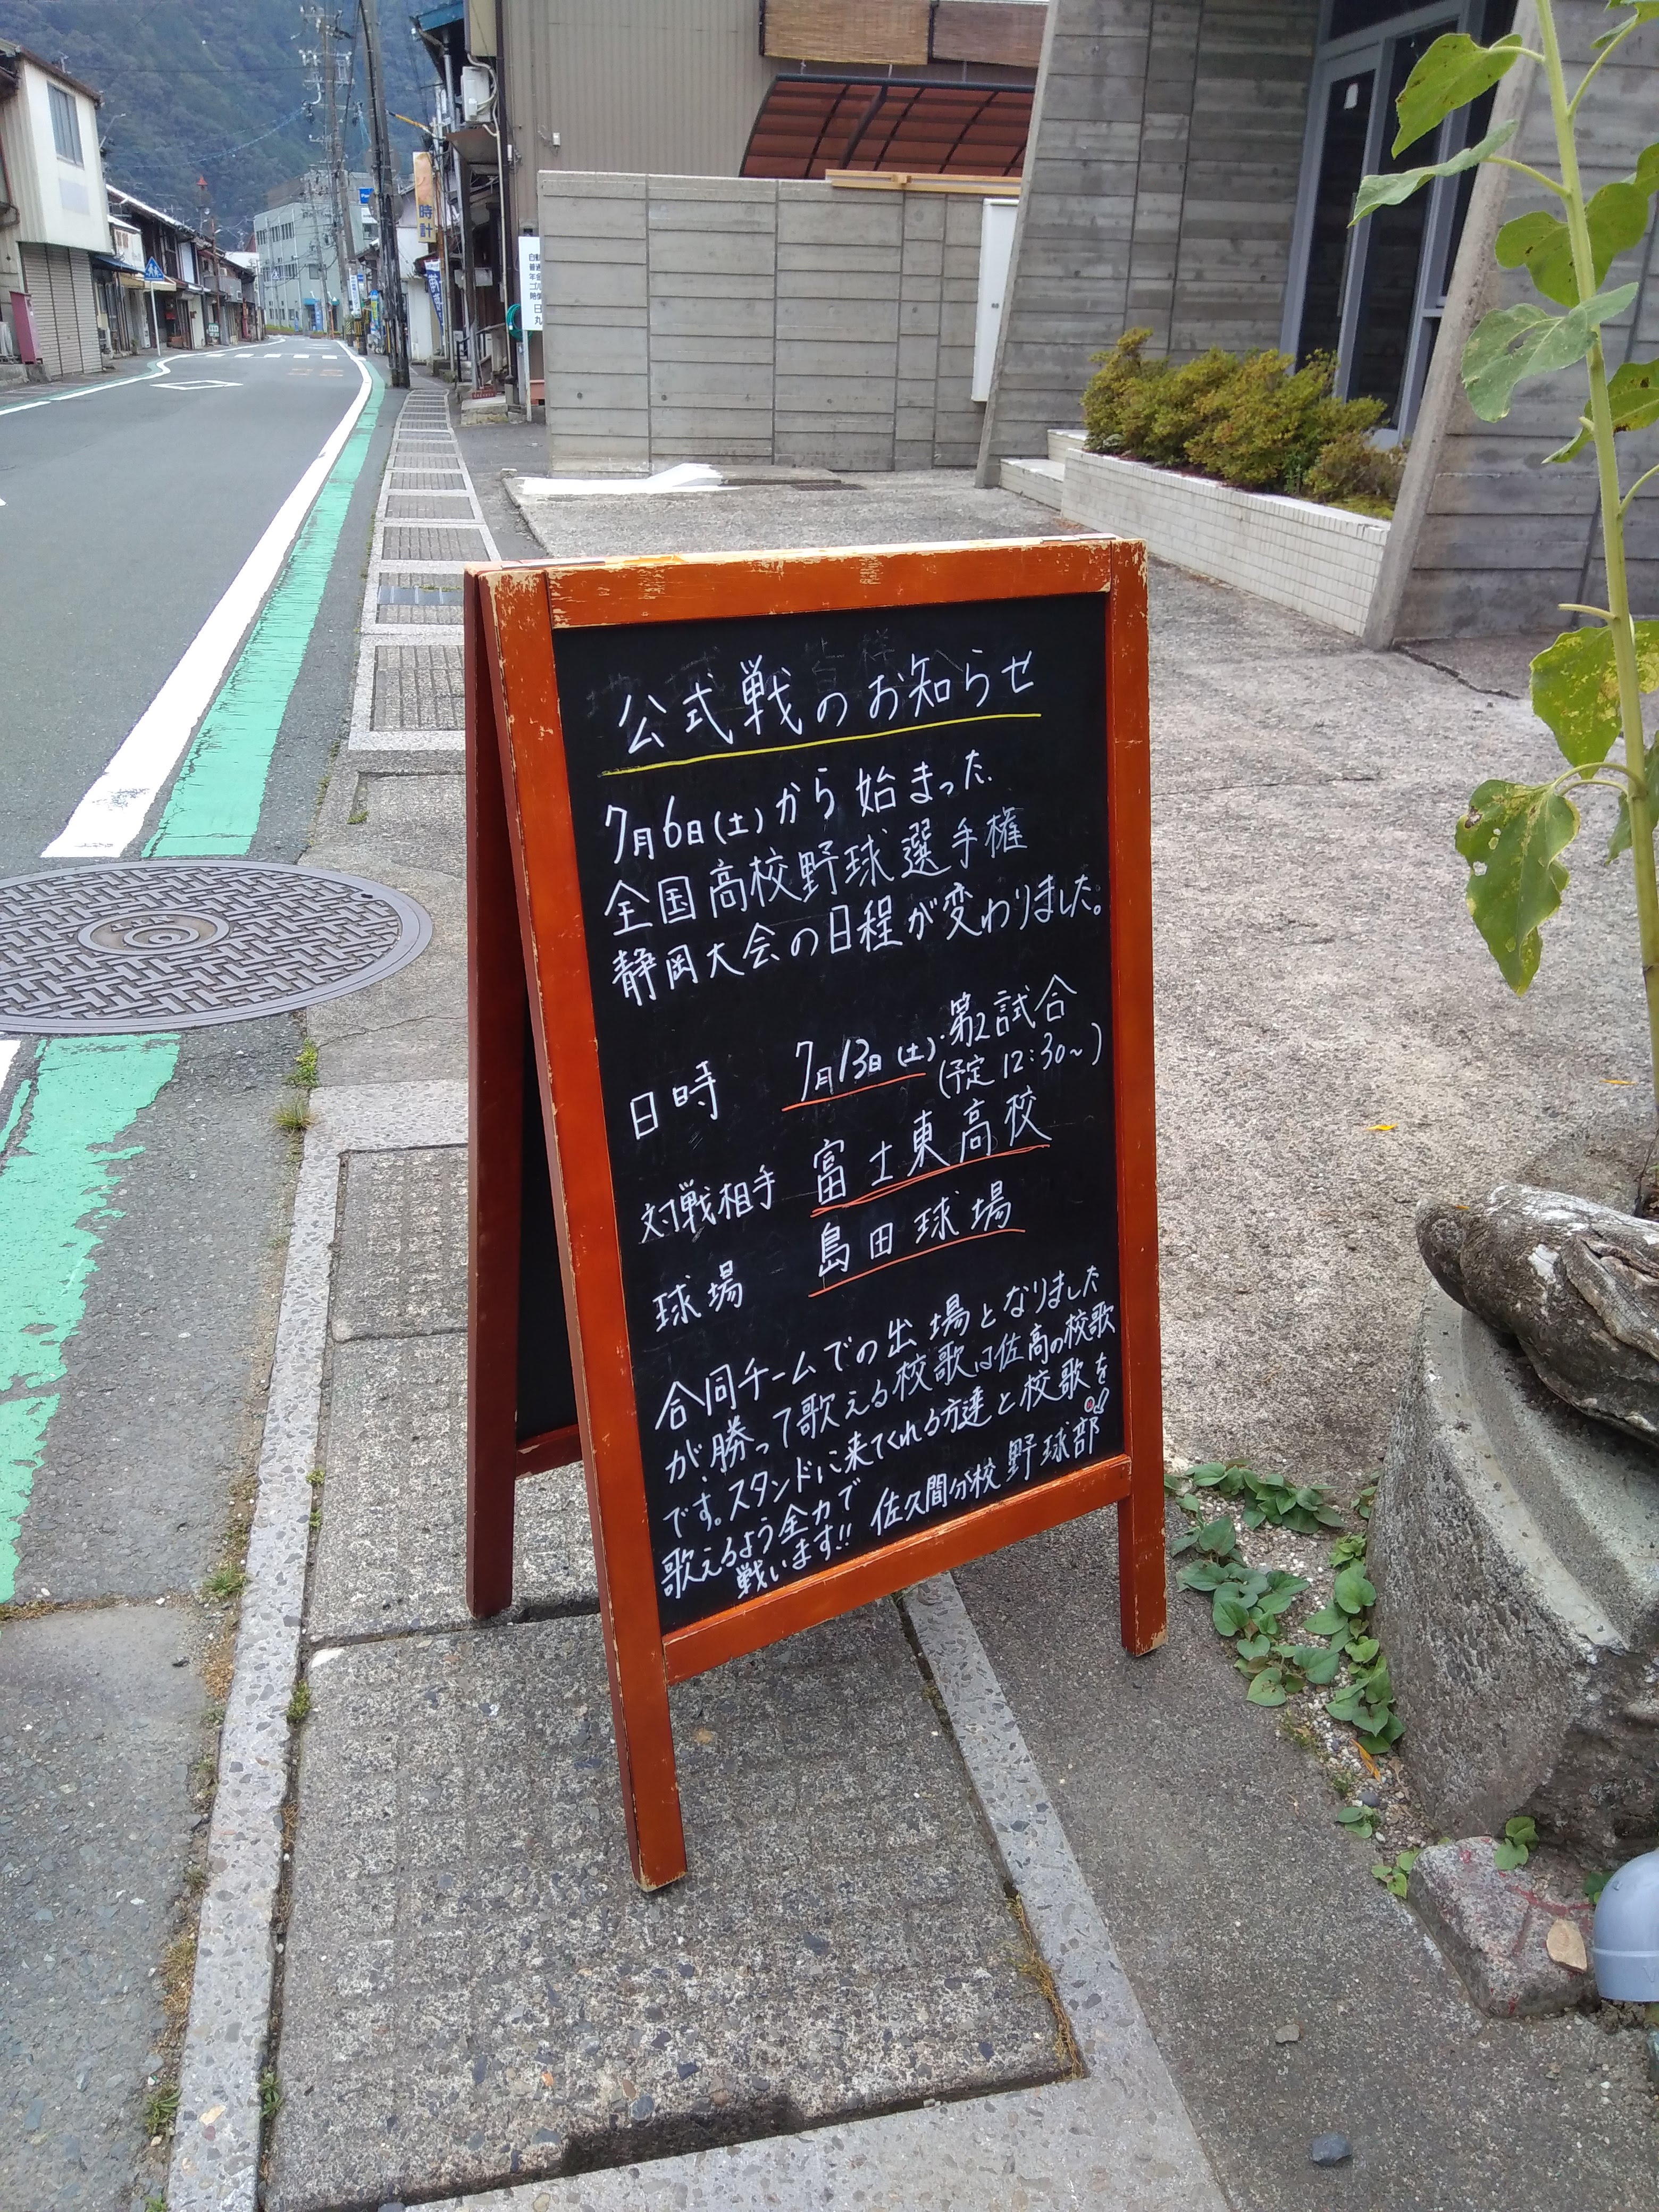 公式戦のお知らせ
7月6日(土)から始まった
全国高校野球選手権
静岡大会の日程が変わりました。
日時 7月13日(土)・第2試合
(予定12:30~)
対戦相手 富士東高校
球場 島田球場
合同チームでの出場となりました
が勝って歌える校歌は佐高の校歌
です。スタンドに来てくれる方達と校歌を
歌えるよう全力で
戦います!! 佐久間分校野球部
時計